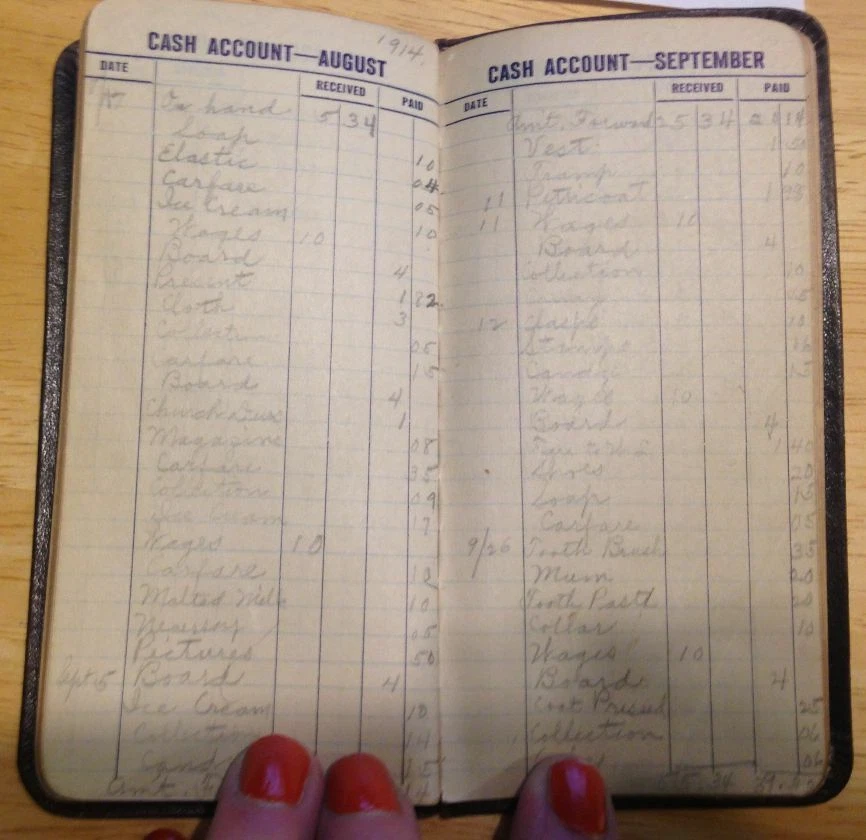 CASH ACCOUNT—AUGUST 1914.
DATE RECEIVED PAID
On hand 5 34
Soap 10
Elastic 04
Carfare 05
Ice Cream 10
Wages 10
Board 4
Present 1 22
Cloth 3
Collection 05
Carfare 15
Board 4
Church dues 1
Magazine 08
Carfare 35
Collection 09
Ice Cream 17
Wages 10
Carfare 10
Malted Milk 10
05
Pictures 50
Sept 5 Board 4
Ice Cream 10
Collection 14
Candy 15
Amt. 14
CASH ACCOUNT—SEPTEMBER
DATE RECEIVED PAID
Amt. Forward 25 34 14
Vest 1 50
10
11 Petticoat 1 98
11 Wages 10
Board 4
Collection 10
15
12 10
Stamps
Candy 15
Wages 10
Board 4
Fare to 1 40
Shoes 20
Soap 15
Carfare 05
9/26 Tooth Brush 35
Mum 20
Tooth Paste 20
Collar 10
Wages 10
Board 4
Coat Pressed 25
Collection 06
06
34